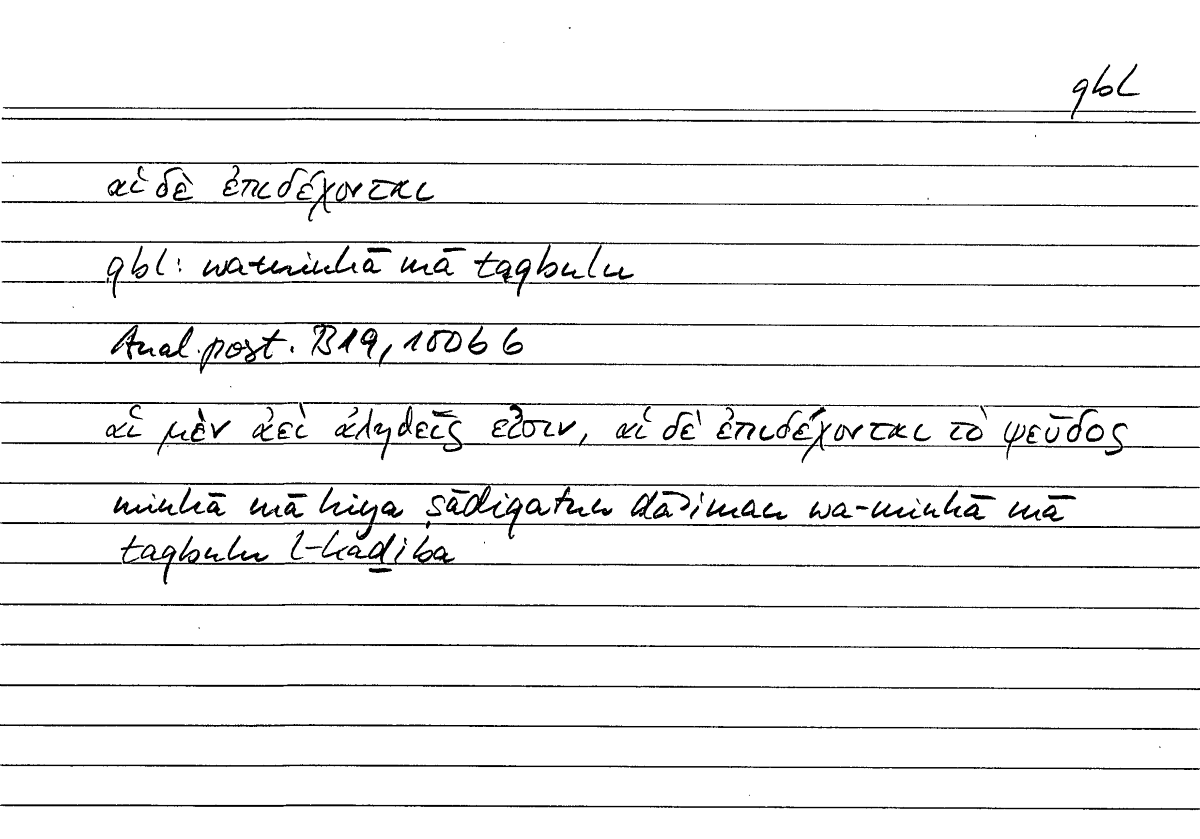 qbl
αἱ δὲ ἐπιδέχονται
qbl: wa-minhā mā taqbulu
Anal. post. B19, 100b6
αἱ μὲν ἀεὶ ἀληθεῖς εἰσιν, αἱ δὲ ἐπιδέχονται τὸ ψεῦδος
minhā mā hiya ṣādiqatun dāʾiman wa-minhā mā
taqbulu l-kaḏiba